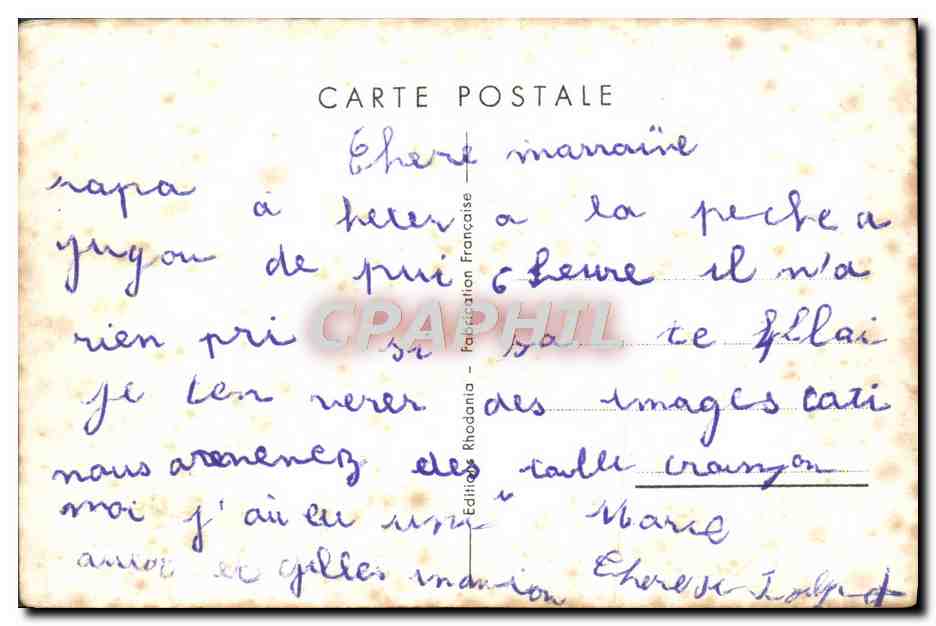 CARTE POSTALE
Chere marraine
rapa a heter a la peche a
jugon de pui 6 heure il n'a
rien pri si sa te fllai
je ten verer des images cati
nous amenenez des taille crainyon
moi j'ai eu une Marie
et gilles Therese
Editions Rhodania - Fabrication Française
CPAPHIL